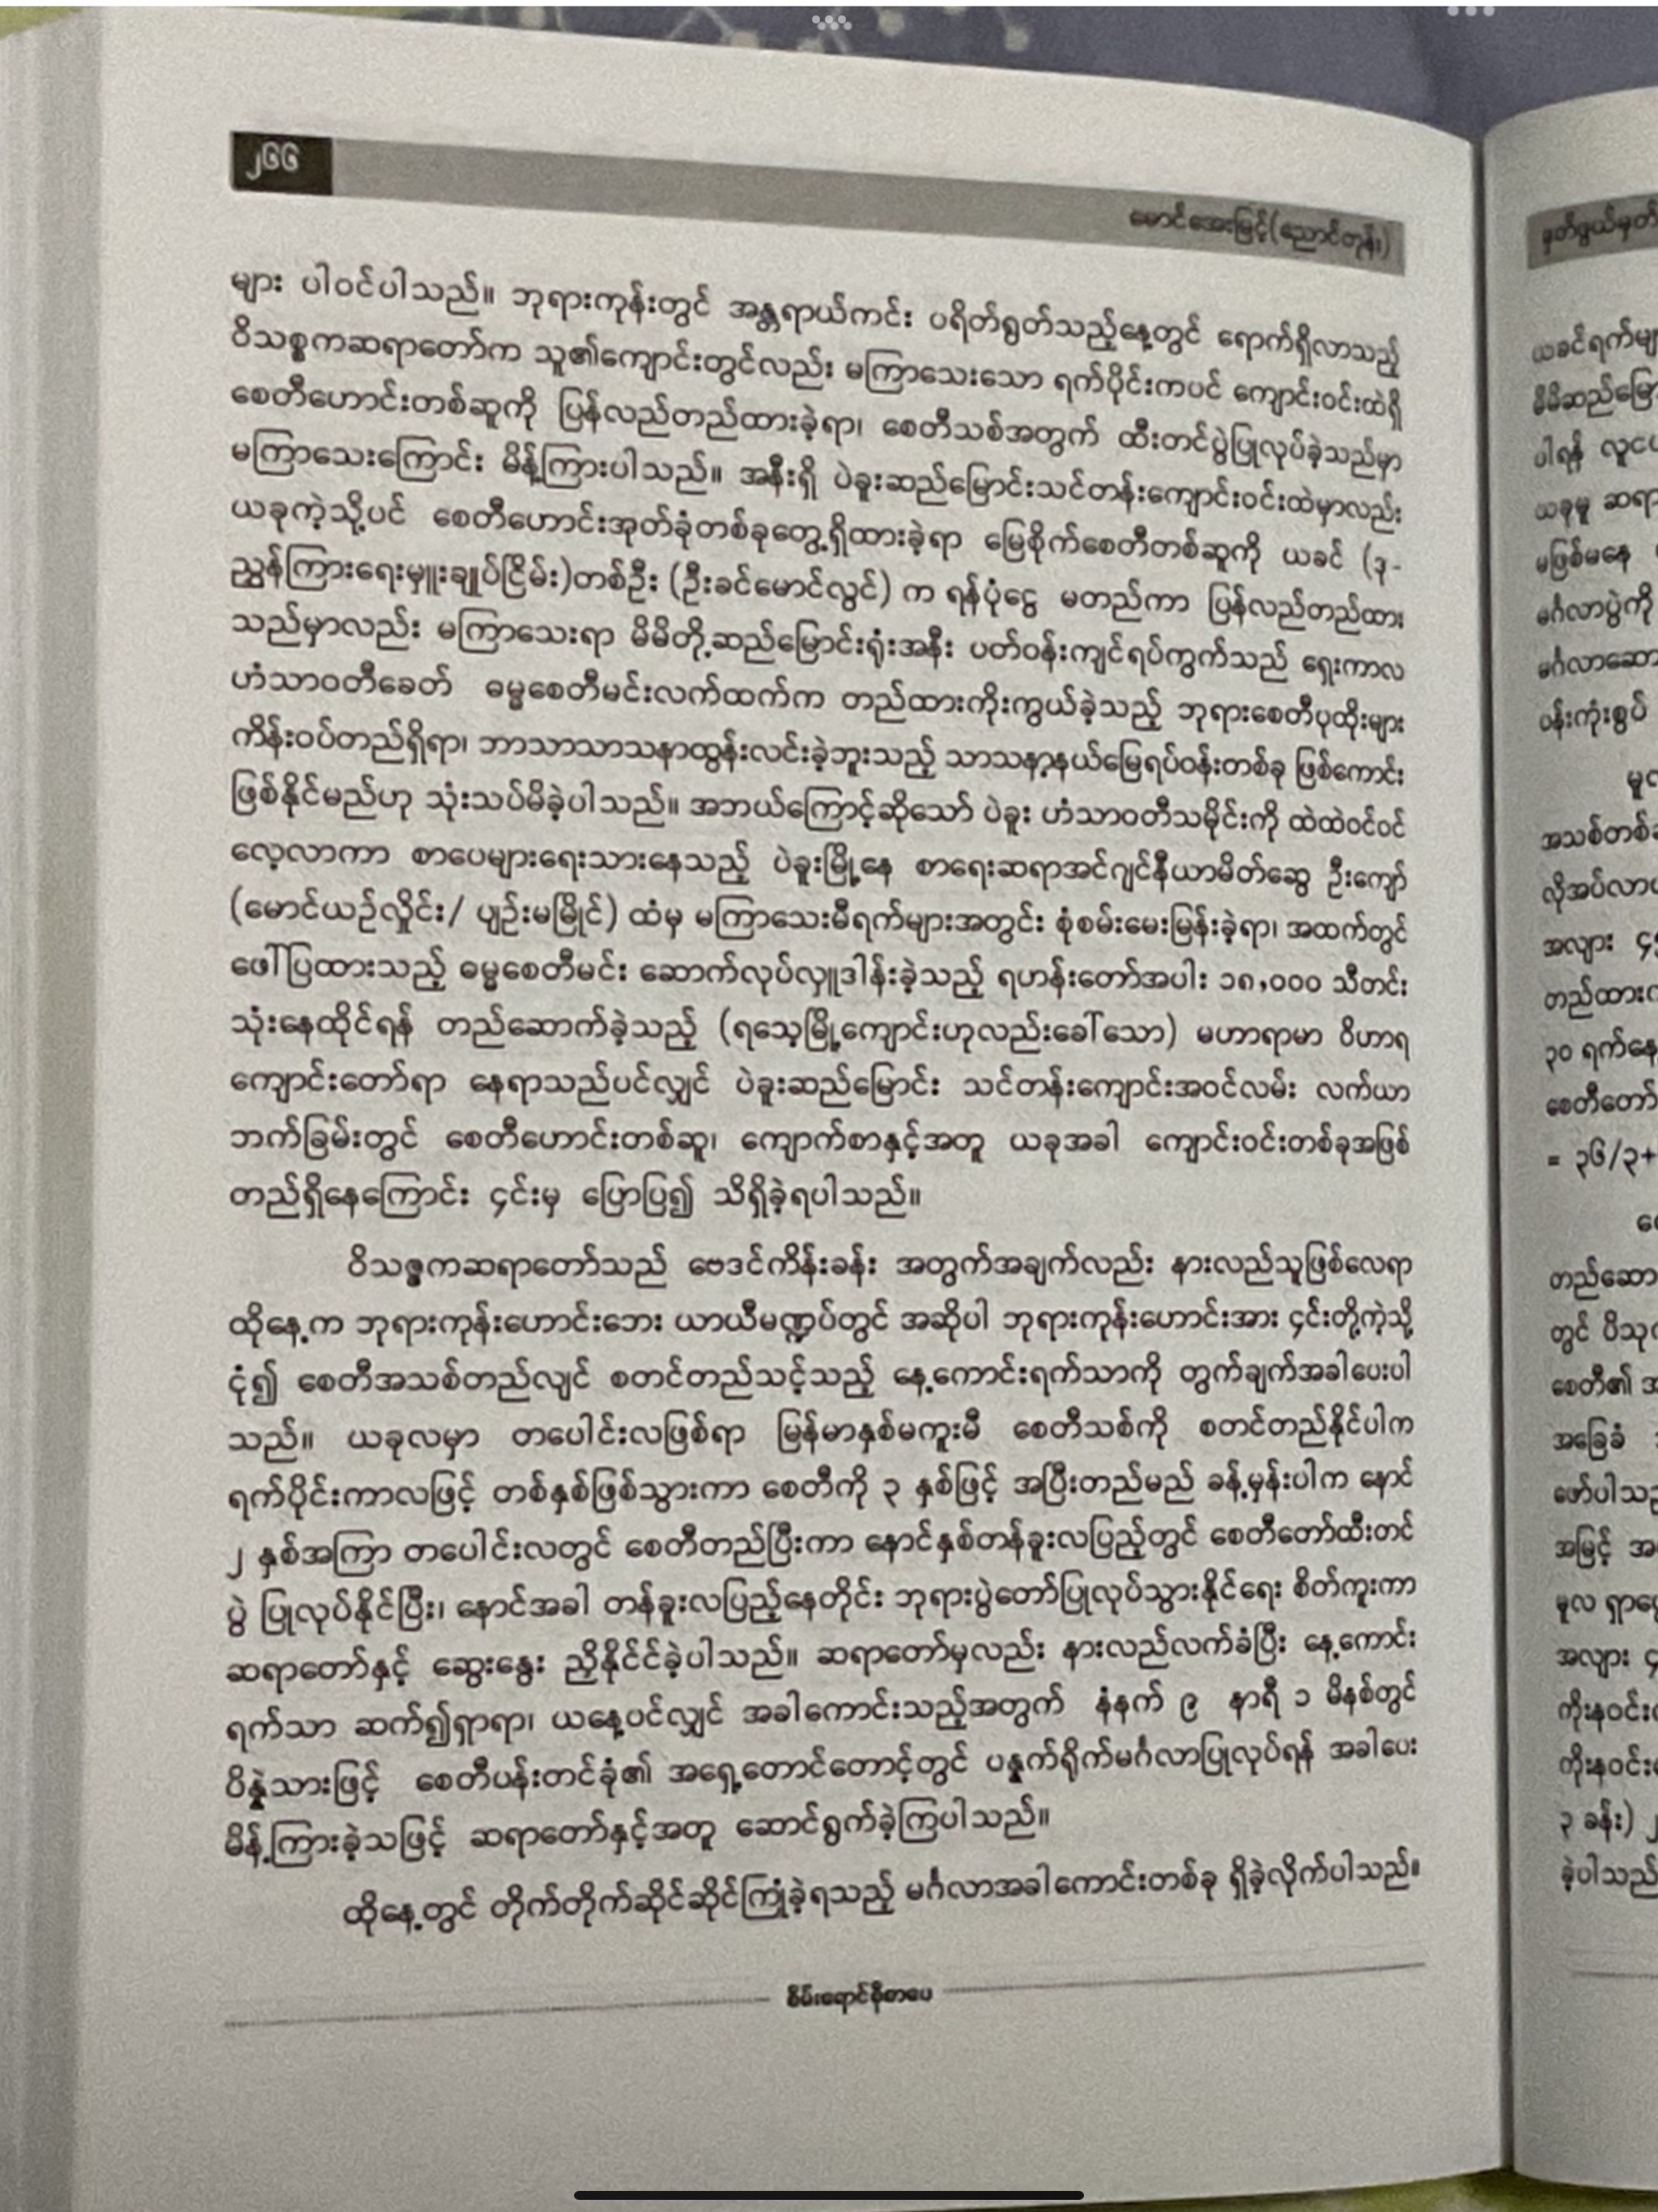 ၂၆၆
မောင်အေးမြင့်(ညောင်တုန်း)
များ ပါဝင်ပါသည်။ ဘုရားကုန်းတွင် အန္တရာယ်ကင်း ပရိတ်ရွတ်သည့်နေ့တွင် ရောက်ရှိလာသည့်
ဝိသစ္စကဆရာတော်က သူ၏ကျောင်းတွင်လည်း မကြာသေးသော ရက်ပိုင်းကပင် ကျောင်းဝင်းထဲရှိ
စေတီဟောင်းတစ်ဆူကို ပြန်လည်တည်ထားခဲ့ရာ၊ စေတီသစ်အတွက် ထီးတင်ပွဲပြုလုပ်ခဲ့သည်မှာ
မကြာသေးကြောင်း မိန့်ကြားပါသည်။ အနီးရှိ ပဲခူးဆည်မြောင်းသင်တန်းကျောင်းဝင်းထဲမှာလည်း
ယခုကဲ့သို့ပင် စေတီဟောင်းအုတ်ခုံတစ်ခုတွေ့ရှိထားခဲ့ရာ မြေစိုက်စေတီတစ်ဆူကို ယခင် (ဒု-
ညွှန်ကြားရေးမှူးချုပ်ငြိမ်း)တစ်ဦး (ဦးခင်မောင်လွင်) က ရန်ပုံငွေ မတည်ကာ ပြန်လည်တည်ထား
သည်မှာလည်း မကြာသေးရာ မိမိတို့ဆည်မြောင်းရုံးအနီး ပတ်ဝန်းကျင်ရပ်ကွက်သည် ရှေးကာလ
ဟံသာဝတီခေတ် ဓမ္မစေတီမင်းလက်ထက်က တည်ထားကိုးကွယ်ခဲ့သည့် ဘုရားစေတီပုထိုးများ
ကိန်းဝပ်တည်ရှိရာ၊ ဘာသာသာသနာထွန်းလင်းခဲ့ဘူးသည့် သာသနာ့နယ်မြေရပ်ဝန်းတစ်ခု ဖြစ်ကောင်း
ဖြစ်နိုင်မည်ဟု သုံးသပ်မိခဲ့ပါသည်။ အဘယ်ကြောင့်ဆိုသော် ပဲခူး ဟံသာဝတီသမိုင်းကို ထဲထဲဝင်ဝင်
လေ့လာကာ စာပေများရေးသားနေသည့် ပဲခူးမြို့နေ စာရေးဆရာအင်ဂျင်နီယာမိတ်ဆွေ ဦးကျော်
(မောင်ယဉ်လှိုင်း/ ပျဉ်းမမြိုင်) ထံမှ မကြာသေးမီရက်များအတွင်း စုံစမ်းမေးမြန်းခဲ့ရာ၊ အထက်တွင်
ဖေါ်ပြထားသည့် ဓမ္မစေတီမင်း ဆောက်လုပ်လှူဒါန်းခဲ့သည့် ရဟန်းတော်အပါး ၁၈,၀၀၀ သီတင်း
သုံးနေထိုင်ရန် တည်ဆောက်ခဲ့သည့် (ရသေ့မြို့ကျောင်းဟုလည်းခေါ်သော) မဟာရာမာ ဝိဟာရ
ကျောင်းတော်ရာ နေရာသည်ပင်လျှင် ပဲခူးဆည်မြောင်း သင်တန်းကျောင်းအဝင်လမ်း လက်ယာ
ဘက်ခြမ်းတွင် စေတီဟောင်းတစ်ဆူ၊ ကျောက်စာနှင့်အတူ ယခုအခါ ကျောင်းဝင်းတစ်ခုအဖြစ်
တည်ရှိနေကြောင်း ၄င်းမှ ပြောပြ၍ သိရှိခဲ့ရပါသည်။
ဝိသဇ္ဇကဆရာတော်သည် ဗေဒင်ကိန်းခန်း အတွက်အချက်လည်း နားလည်သူဖြစ်လေရာ
ထိုနေ့က ဘုရားကုန်းဟောင်းဘေး ယာယီမဏ္ဍပ်တွင် အဆိုပါ ဘုရားကုန်းဟောင်းအား ၄င်းတို့ကဲ့သို့
ငုံ၍ စေတီအသစ်တည်လျင် စတင်တည်သင့်သည့် နေ့ကောင်းရက်သာကို တွက်ချက်အခါပေးပါ
သည်။ ယခုလမှာ တပေါင်းလဖြစ်ရာ မြန်မာနှစ်မကူးမီ စေတီသစ်ကို စတင်တည်နိုင်ပါက
ရက်ပိုင်းကာလဖြင့် တစ်နှစ်ဖြစ်သွားကာ စေတီကို ၃ နှစ်ဖြင့် အပြီးတည်မည် ခန့်မှန်းပါက နောင်
၂ နှစ်အကြာ တပေါင်းလတွင် စေတီတည်ပြီးကာ နောင်နှစ်တန်ခူးလပြည့်တွင် စေတီတော်ထီးတင်
ပွဲ ပြုလုပ်နိုင်ပြီး၊ နောင်အခါ တန်ခူးလပြည့်နေတိုင်း ဘုရားပွဲတော်ပြုလုပ်သွားနိုင်ရေး စိတ်ကူးကာ
ဆရာတော်နှင့် ဆွေးနွေး ညှိနိုင်င်ခဲ့ပါသည်။ ဆရာတော်မှလည်း နားလည်လက်ခံပြီး နေ့ကောင်း
ရက်သာ ဆက်၍ရှာရာ၊ ယနေ့ပင်လျှင် အခါကောင်းသည့်အတွက် နံနက် ၉ နာရီ ၁ မိနစ်တွင်
ပိန္နဲသားဖြင့် စေတီပန်းတင်ခုံ၏ အရှေ့တောင်တောင့်တွင် ပန္နက်ရိုက်မင်္ဂလာပြုလုပ်ရန် အခါပေး
မိန့်ကြားခဲ့သဖြင့် ဆရာတော်နှင့်အတူ ဆောင်ရွက်ခဲ့ကြပါသည်။
ထိုနေ့တွင် တိုက်တိုက်ဆိုင်ဆိုင်ကြုံခဲ့ရသည့် မင်္ဂလာအခါကောင်းတစ်ခု ရှိခဲ့လိုက်ပါသည်။
စိမ်းရောင်စိုစာပေ
ယခင်ရက်မျ
မိမိဆည်မြော
ပါရန်
ယခုမူ ဆရာ
မဖြစ်မနေ
မင်္ဂလာပွဲကို
မင်္ဂလာဆော
ပန်းကုံးစွပ်
အသစ်တစ်
အလျား
တည်ထား
၃၀ ရက်နေ
စေတီတော်
= ၃၆/၃+
တည်ဆော
တွင်
စေတီ၏
အခြေခံ
ဖော်ပါသည
အမြင့်
မူလ
အလျား
ကိုးနဝင်း
ကိုးနဝင်း
၃ ခန်း)
ခဲ့ပါသည်